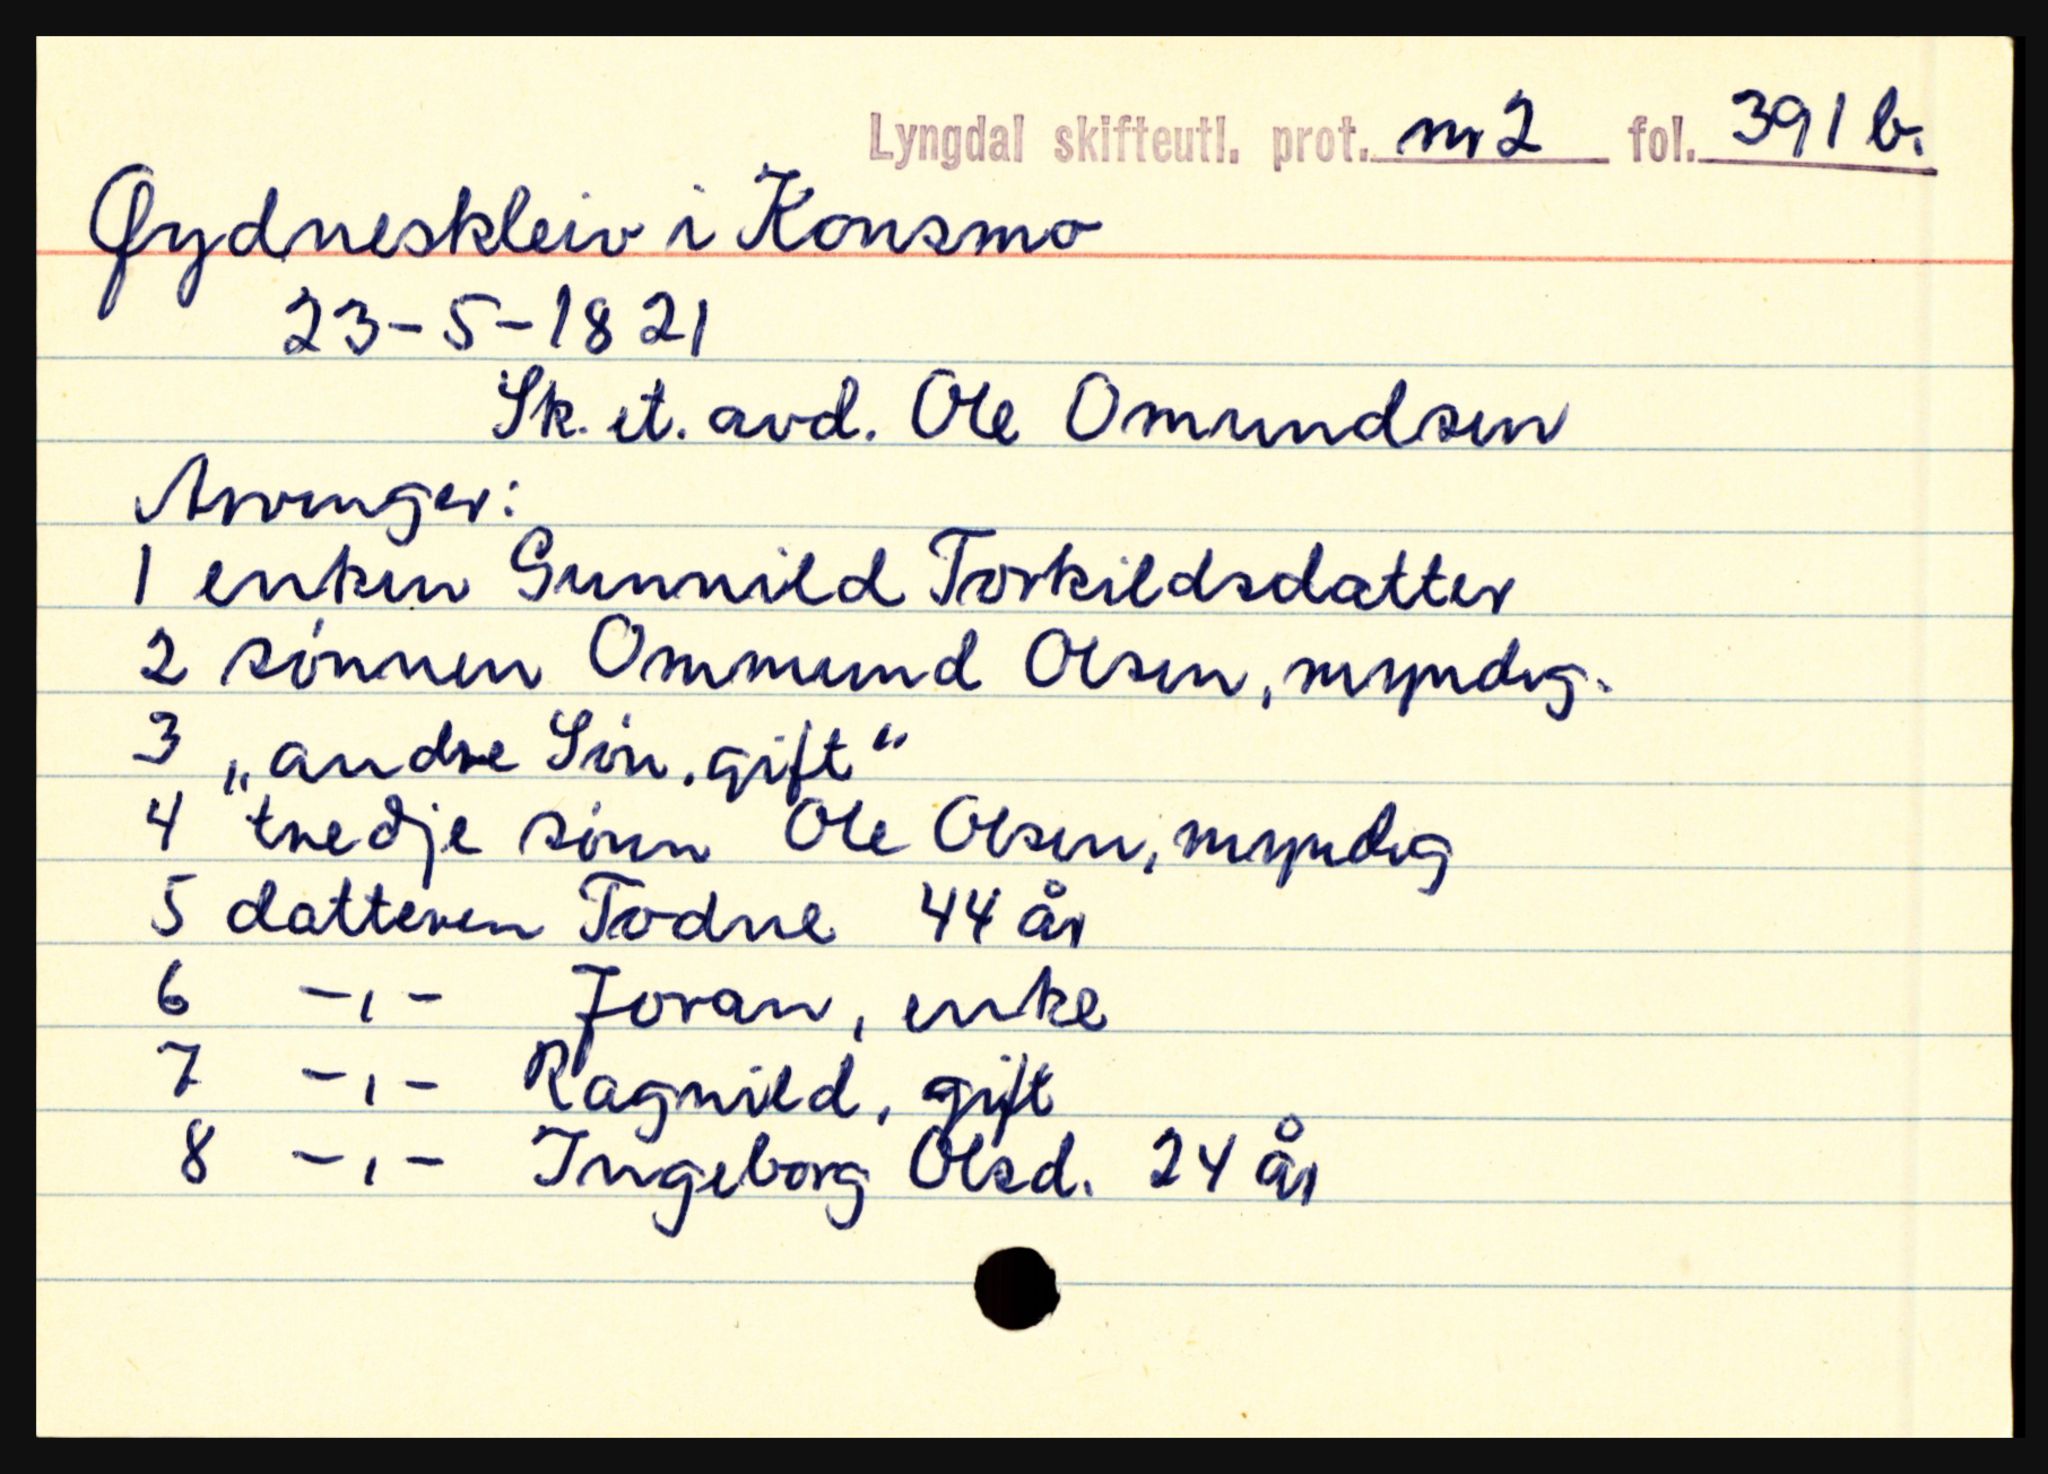 Lyngdal skifteutl. prot. nr 2 fol. 391 b.
Øydneskleiv i Konsmo
23-5-1821
Sk. et. avd. Ole Omundsen
Arvinger:
1 enken Gunnild Torkildsdatter
2 sønnen Ommund Olsen, myndig.
3 „andre Søn. gift“
4 tredje sønn Ole Olsen, myndig
5 datteren Todne 44 år
6 -,- Joran, enke
7 -,- Ragnild, gift
8 -,- Ingeborg Olsd. 24 år